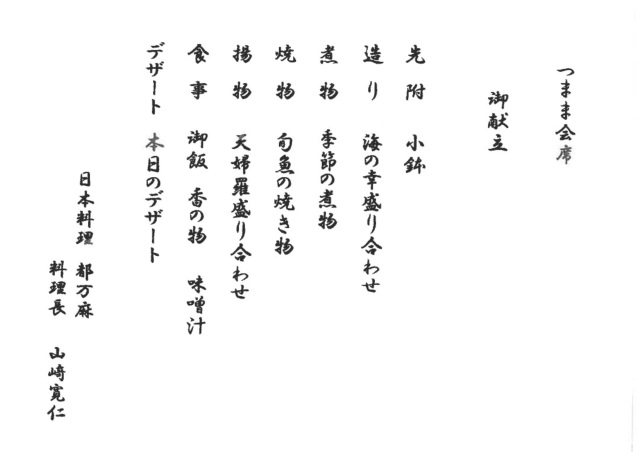 つまま会席
御献立
先附 小鉢
造り 海の幸盛り合わせ
煮物 季節の煮物
焼物 旬魚の焼き物
揚物 天婦羅盛り合わせ
食事 御飯 香の物 味噌汁
デザート 本日のデザート
日本料理 都万麻
料理長 山﨑寛仁